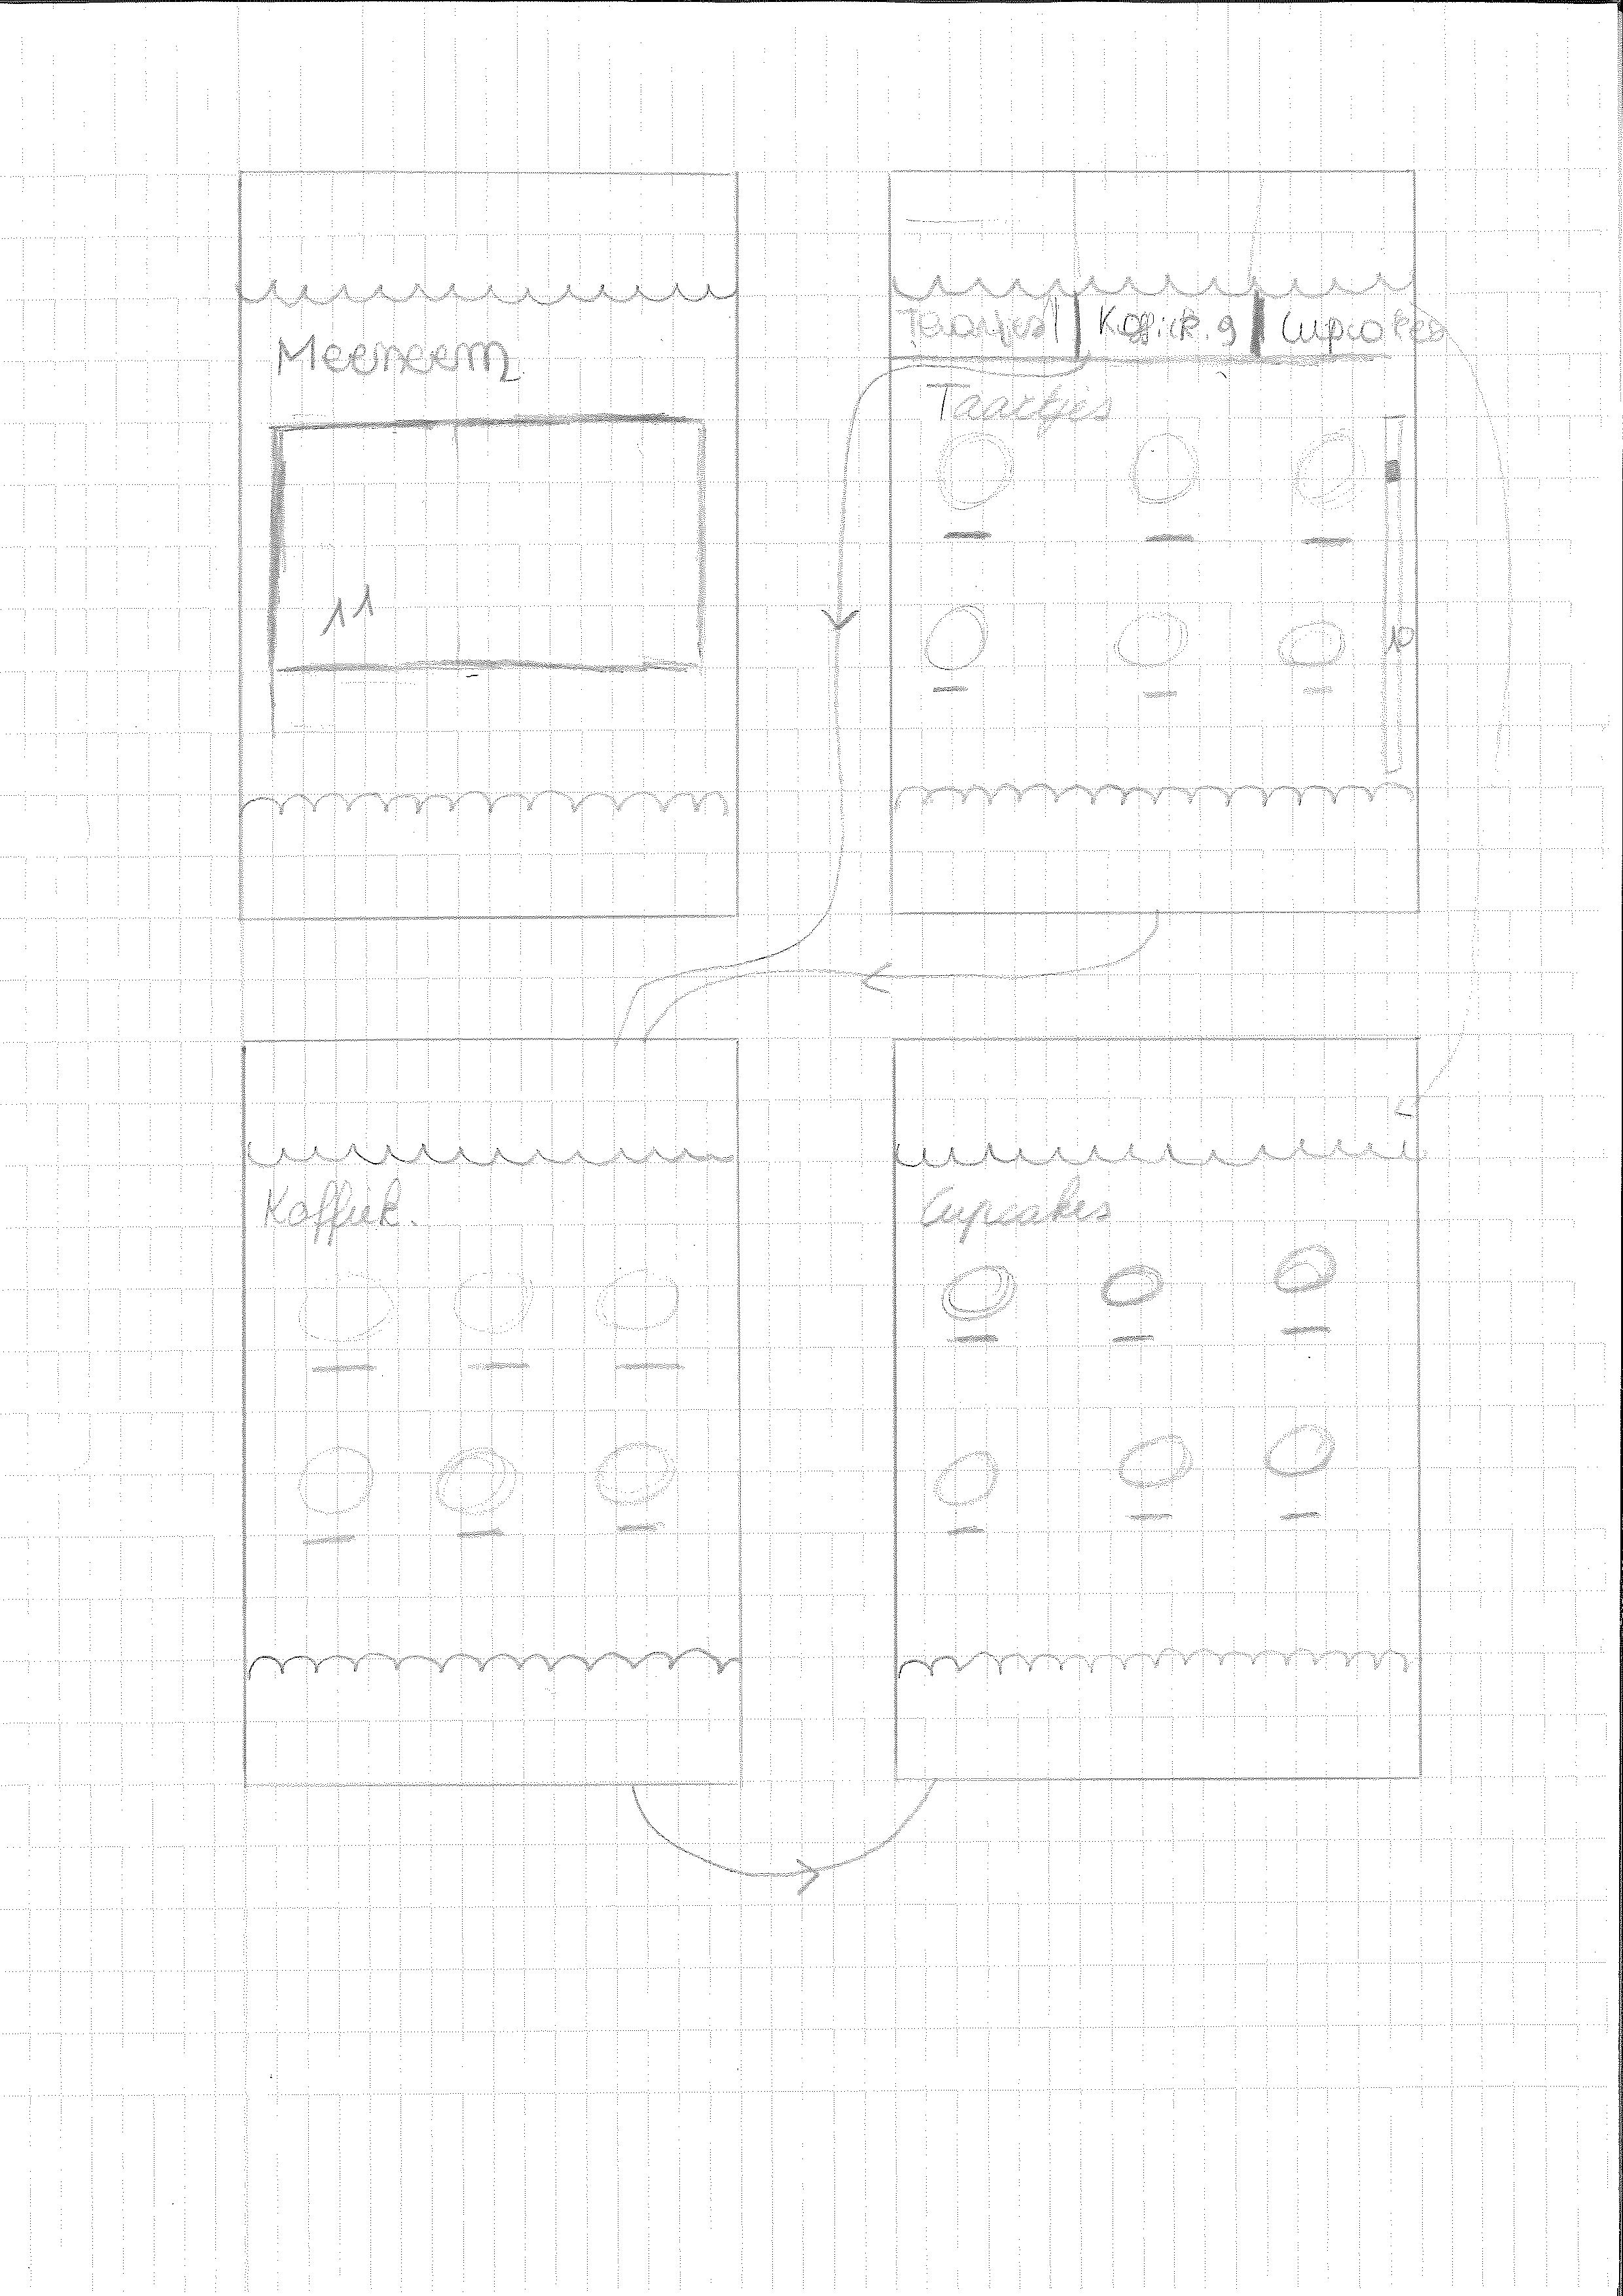 Meeneem
11
Taartjes | Koffiek. 9 | Cupcakes
Taartjes
10
Koffiek.
Cupcakes